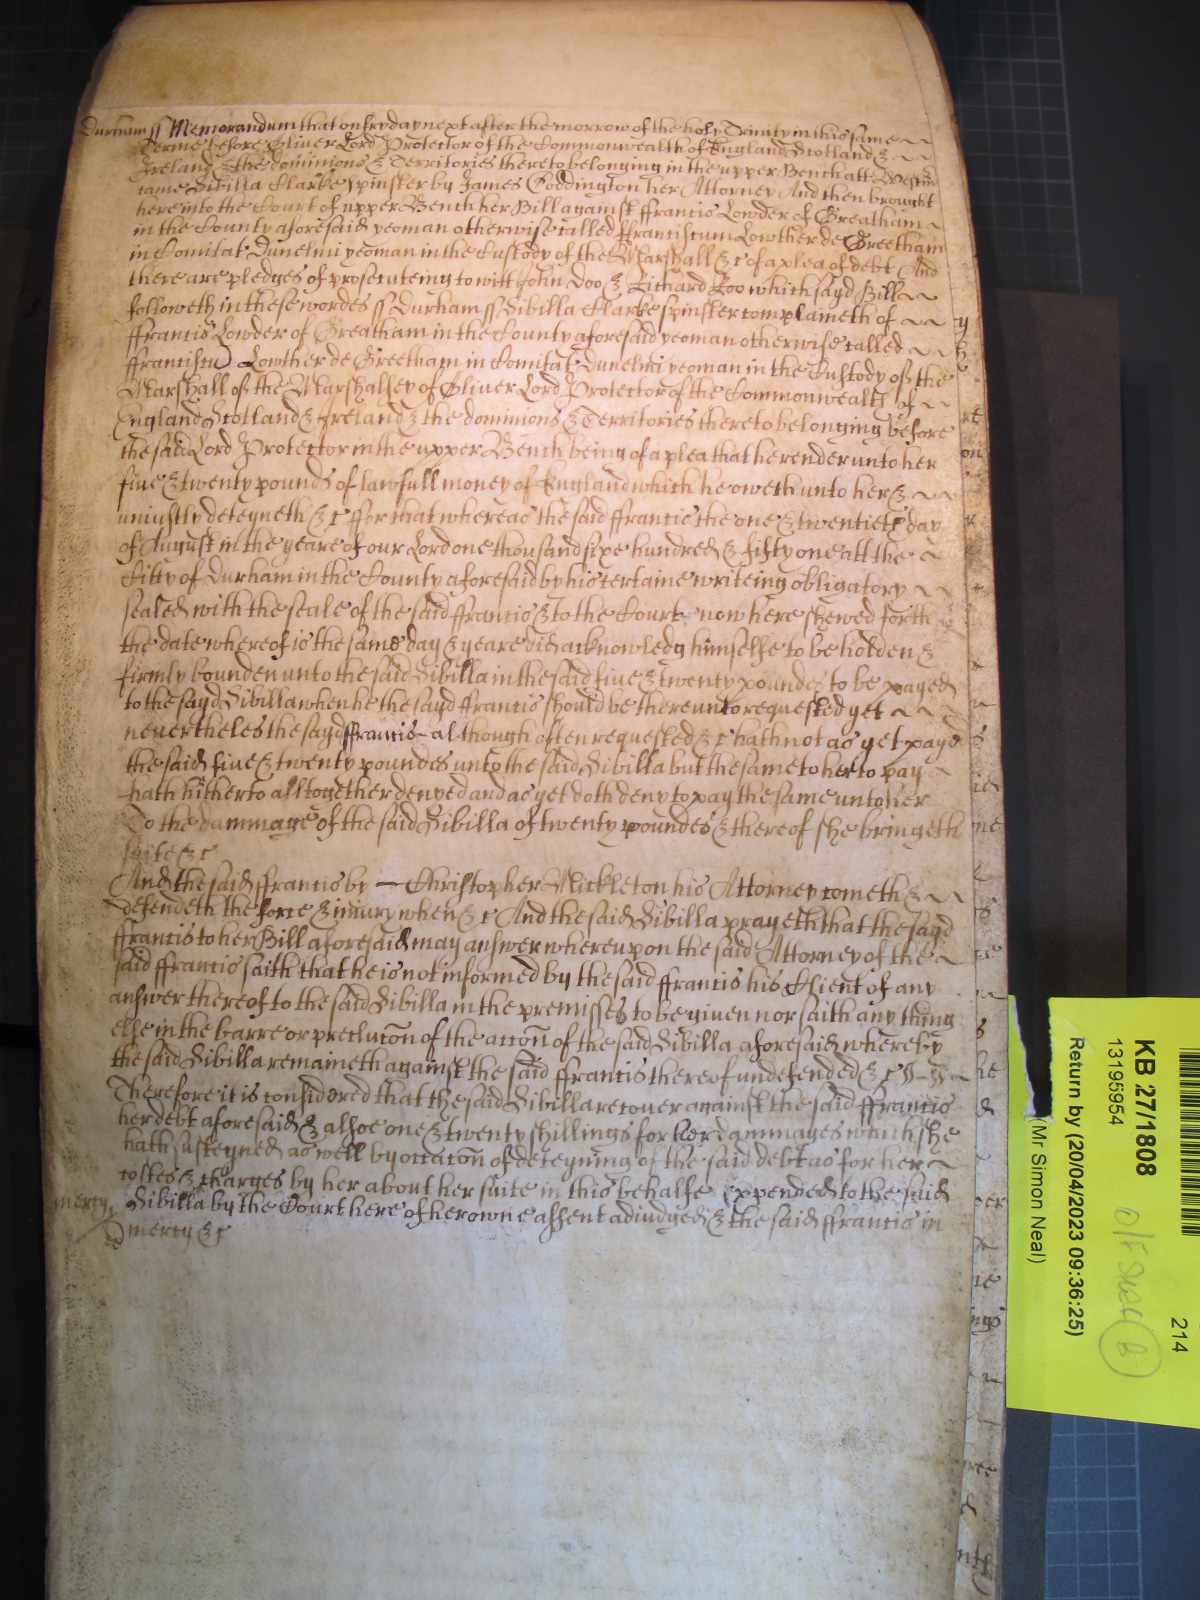 Durham ss Memorandum that on fryday next after the morrow of the holy Trinity in this same
Terme before Oliver Lord Protector of the Commonwealth of England Scotland &
Ireland & the dominions & Territories thereto belonging in the upper Bench att Westm
came Sibilla Clarke spinster by James Coddington her Attorney And then brought
here into the Court of upper Bench her Bill against ffrancis Lowder of Greatham
in the County aforesaid yeoman otherwise called ffranciscum Lowther de Greetham
in Comitat Dunelmi yeoman in the Custody of the Marshall &c of a plea of debt And
there are pledges of prosecuteing to witt John Doo & Richard Roo which sayd Bill
followeth in these wordes ss Durham ss Sibilla Clarke spinster complaineth of
ffrancis Lowder of Greatham in the County aforesaid yeoman otherwise called
ffranciscu Lowther de Greetham in Comitat Dunelmi yeoman in the Custody of the
Marshall of the Marshalsey of Oliver Lord Protector of the Commonwealth of
England Scotland & Ireland & the dominions & Territories thereto belonging before
the said Lord Protector in the upper Bench being of a plea that he render unto her
five & twenty pounds of lawfull money of England which he oweth unto her &
uniustly deteyneth &c ffor that whereas the said ffrancis the one & twentieth day
of August in the yeare of our Lord one thousand sixe hundred & fifty one att the
Citty of Durham in the County aforesaid by his certaine writeing obligatory
sealed with the seale of the said ffrancis & to the Court now here shewed forth
the date whereof is the same day & yeare did acknowledg himselfe to be holden &
firmly bounden unto the said Sibilla in the said five & twenty poundes to be payed
to the sayd Sibilla when he the sayd ffrancis should be thereunto requested yet
nevertheles the sayd ffrancis although often requested &c hath not as yet payd
the said five & twenty poundes unto the said Sibilla but the same to her to pay
hath hitherto alltogether denyed and as yet doth deny to pay the same unto her
To the dammage of the said Sibilla of twenty poundes & thereof she bringeth
suite &c
And the said ffrancis by — Christopher Mickleton his Attorney cometh &
defendeth the force & iniury when &c And the said Sibilla prayeth that the sayd
ffrancis to her Bill aforesaid may answer whereupon the said Attorney of the
said ffrancis saith that he is not informed by the said ffrancis his Client of any
answer thereof to the said Sibilla in the premisses to be given nor saith any thing
else in the barre or preclucon of the accon of the said Sibilla aforesaid whereby
the said Sibilla remaineth against the said ffrancis thereof undefended &c
Therefore it is considered that the said Sibilla recover against the said ffrancis
her debt aforesaid & alsoe one & twenty shillings for her dammages which she
hath susteyned as well by occacon of deteyning of the said debt as for her
costes & charges by her about her suite in this behalfe expended to the said
mercy Sibilla by the Court here of her owne assent adiudged & the said ffrancis in
mercy &c
KB 27/1808
13195954
Return by (20/04/2023 09:36:25)
(Mr Simon Neal)
214